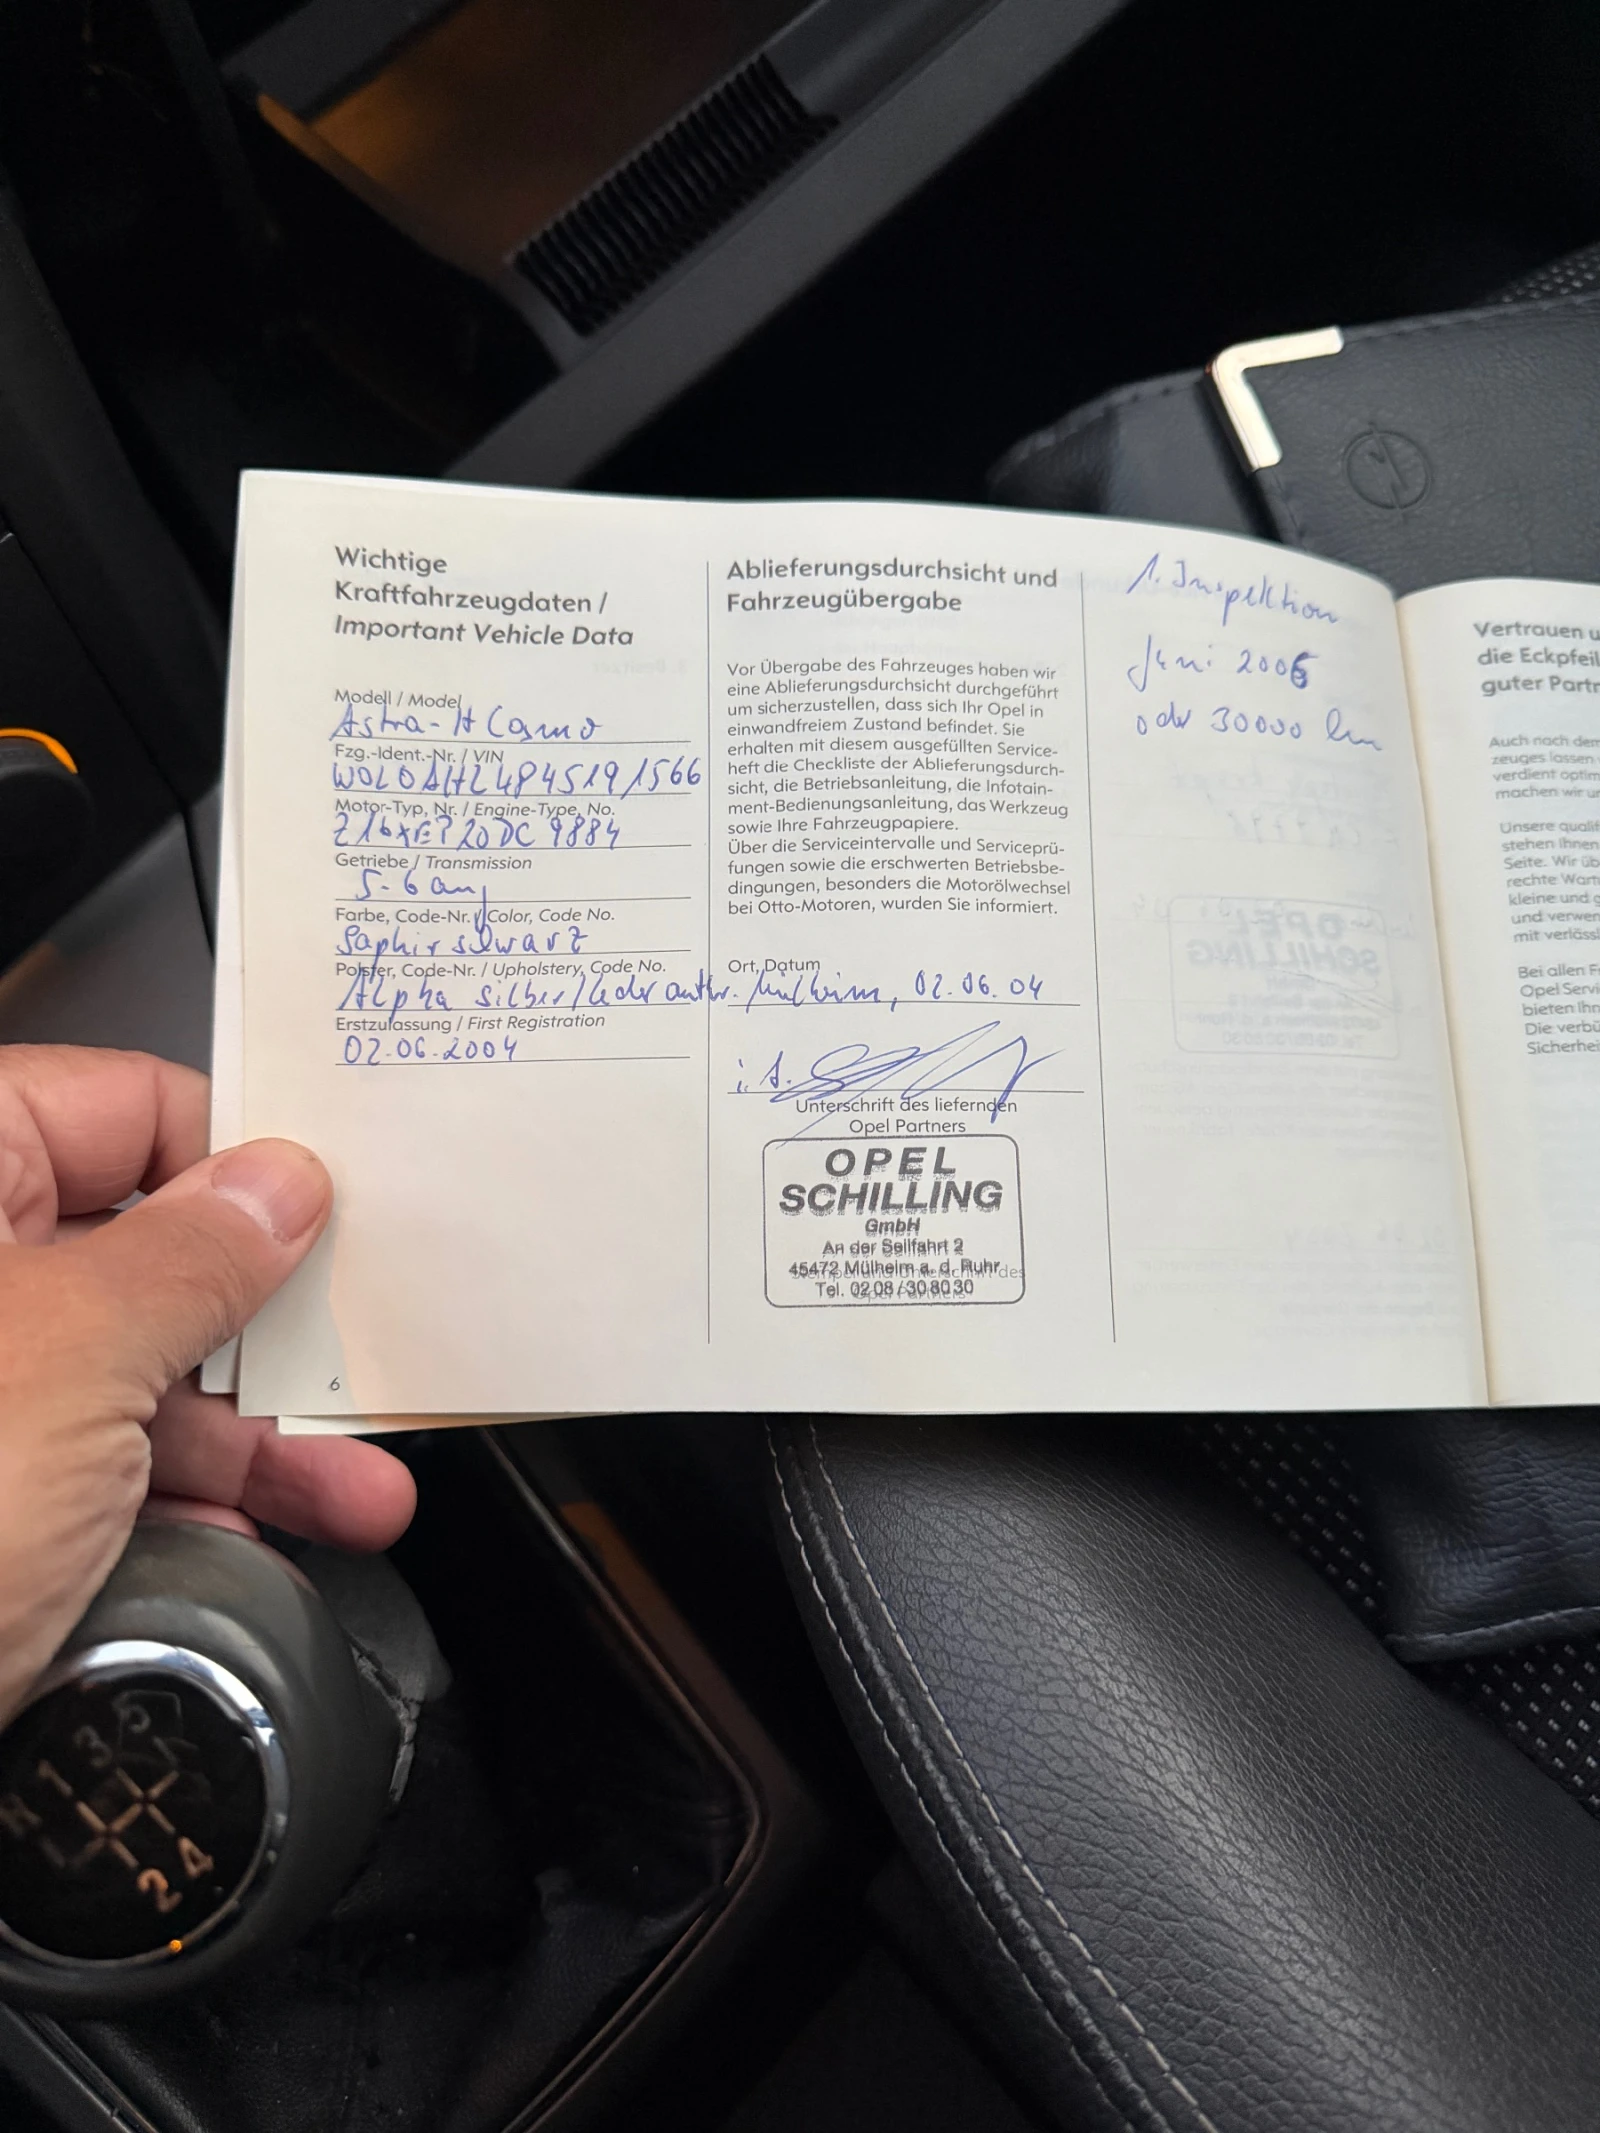 Wichtige
Kraftfahrzeugdaten /
Important Vehicle Data
Modell / Model
Astra-H Cosmo
Fzg.-Ident.-Nr. / VIN
W0L0AHL4845191566
Motor-Typ, Nr. / Engine-Type, No.
Z16XEP 20DC9884
Getriebe / Transmission
5-Gang
Farbe, Code-Nr. / Color, Code No.
Saphir schwarz
Polster, Code-Nr. / Upholstery, Code No.
Alpha silber/Leder anthr.
Erstzulassung / First Registration
02.06.2004
6
Ablieferungsdurchsicht und
Fahrzeugübergabe
Vor Übergabe des Fahrzeuges haben wir
eine Ablieferungsdurchsicht durchgeführt
um sicherzustellen, dass sich Ihr Opel in
einwandfreiem Zustand befindet. Sie
erhalten mit diesem ausgefüllten Service-
heft die Checkliste der Ablieferungsdurch-
sicht, die Betriebsanleitung, die Infotain-
ment-Bedienungsanleitung, das Werkzeug
sowie Ihre Fahrzeugpapiere.
Über die Serviceintervalle und Serviceprü-
fungen sowie die erschwerten Betriebsbe-
dingungen, besonders die Motorölwechsel
bei Otto-Motoren, wurden Sie informiert.
Ort, Datum
Mülheim, 02.06.04
i.A.
Unterschrift des liefernden
Opel Partners
OPEL
SCHILLING
GmbH
An der Seilfahrt 2
45472 Mülheim a. d. Ruhr
Tel. 02 08 / 30 80 30
1. Inspektion
Juni 2006
oder 30000 km
Vertrauen u
die Eckpfeil
guter Partn
Auch nach dem
zeuges lassen
verdient optim
machen wir un
Unsere qualif
stehen Ihnen
Seite. Wir üb
rechte Wart
kleine und g
und verwen
mit verläss
Bei allen F
Opel Servi
bieten Ihn
Die verbü
Sicherhei
1 3 5
R
2 4